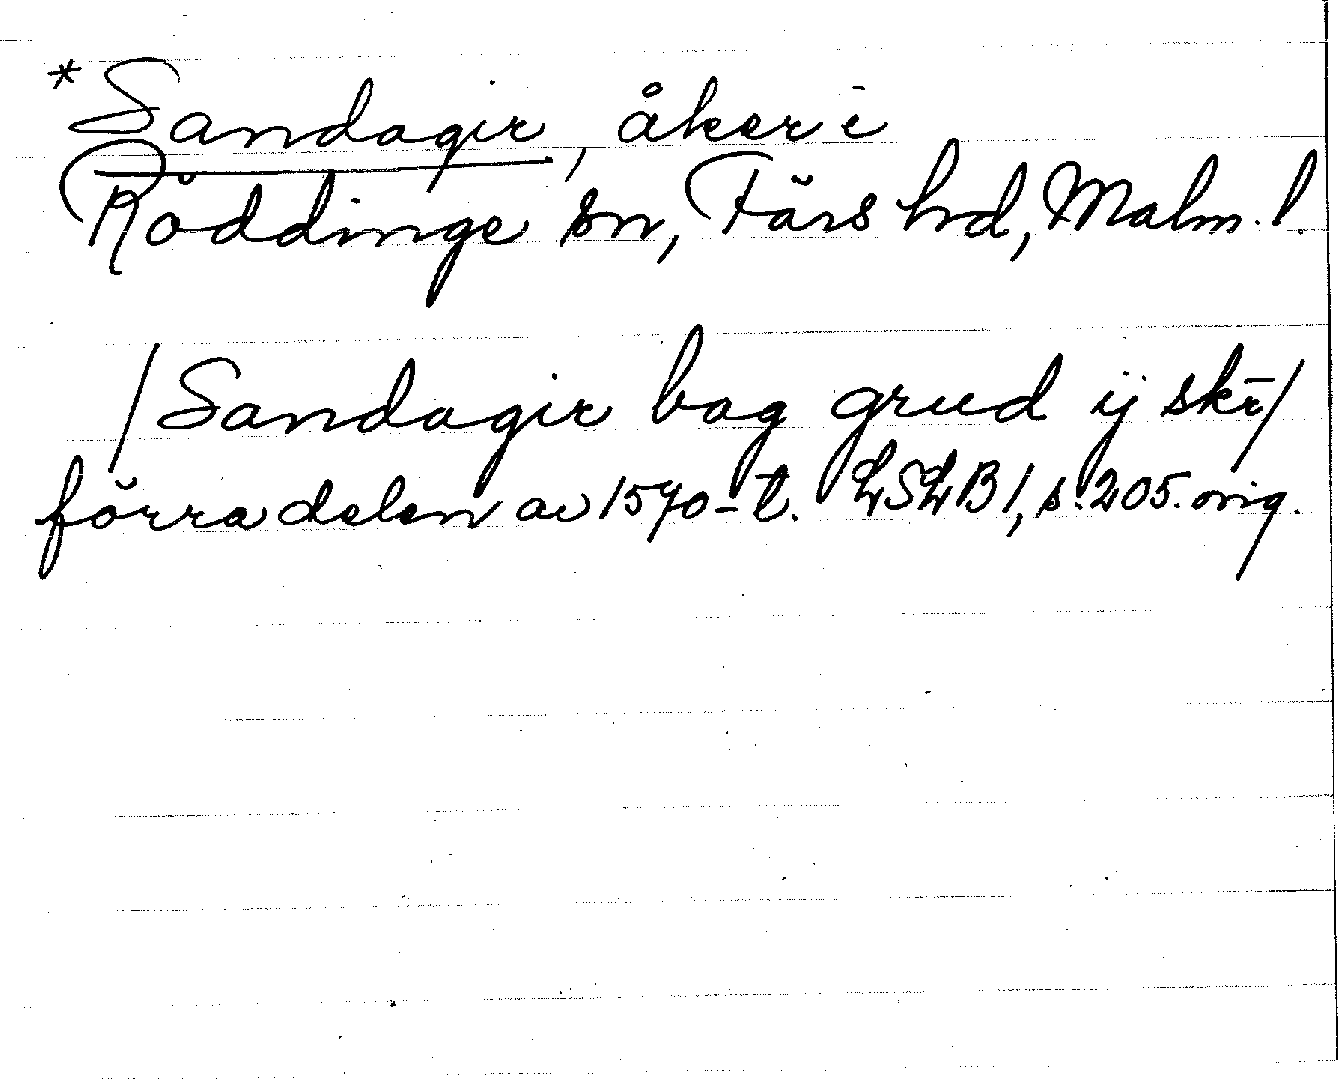 *Sandagir, åker i
Röddinge sn, Färs hd, Malm. l.
/Sandagir bag grud ij skr̄/
förra delen av 1570-t. LSLB 1, s. 205. orig.